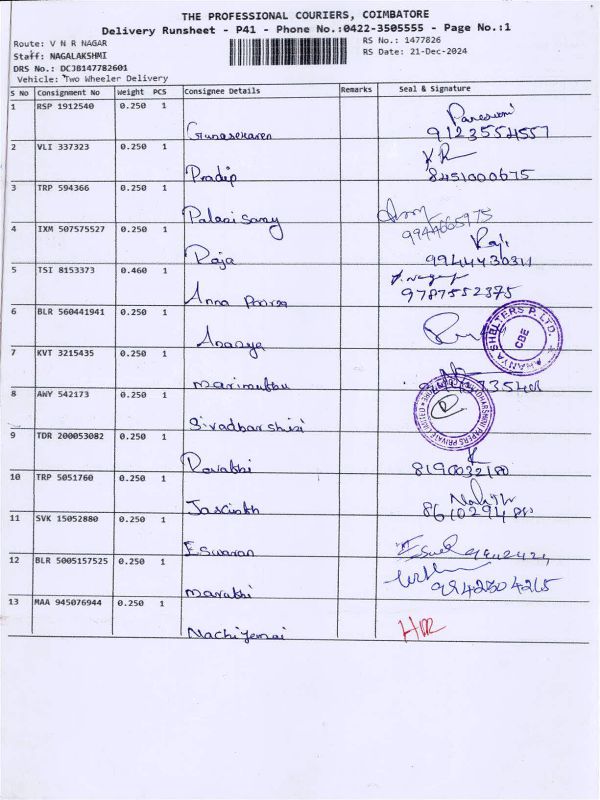 THE PROFESSIONAL COURIERS, COIMBATORE
Delivery Runsheet - P41 - Phone No.:0422-3505555 - Page No.:1
Route: V N R NAGAR
RS No.: 1477826
Staff: NAGALAKSHMI
RS Date: 21-Dec-2024
DRS No.: DCJB147782601
Vehicle: Two Wheeler Delivery
S No Consignment No Weight PCS Consignee Details Remarks Seal & Signature
1 RSP 1912540 0.250 1
Gunasekaren 9123554557
2 VLI 337323 0.250 1
Pradip 8451000675
3 TRP 594366 0.250 1
Palanisamy 9944665975
4 IXM 507575527 0.250 1
Raja 9944430311
5 TSI 8153373 0.460 1
Anna Poorna 9787552375
6 BLR 560441941 0.250 1
Ananya
ANANYA SHELTERS P. LTD. CBE
7 KVT 3215435 0.250 1
marimuthu
8 AWY 542173 0.250 1
Sivadharshini
9 TDR 200053082 0.250 1
8190032180
10 TRP 5051760 0.250 1
Jascinth
11 SVK 15052880 0.250 1
Eswaran
12 BLR 5005157525 0.250 1
9942504265
13 MAA 945076944 0.250 1